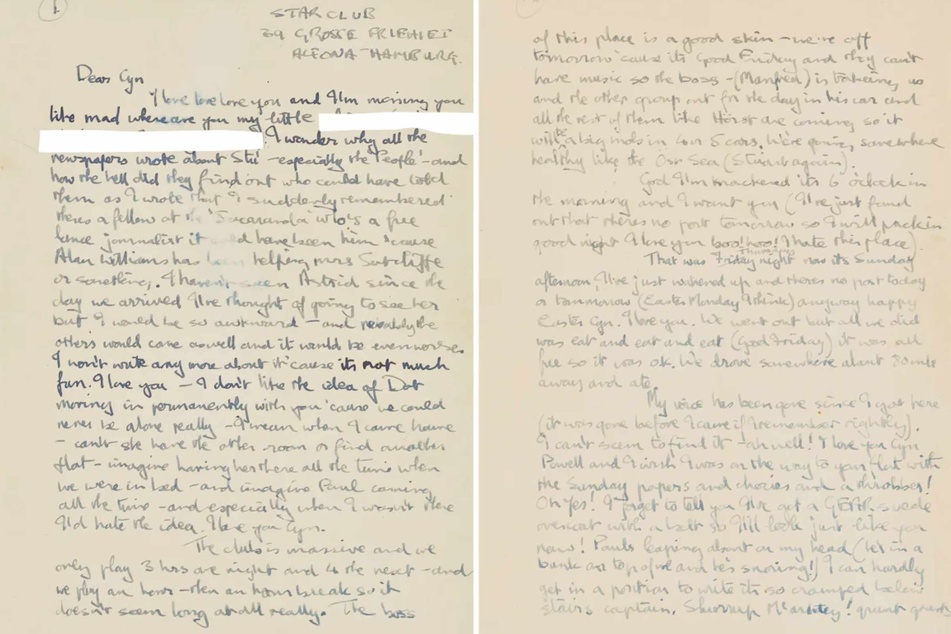 STAR CLUB
39 GROSSE FREIHEIT
ALTONA - HAMBURG.
Dear Cyn
I love love love you and I'm missing you
like mad where are you my little
I wonder why all the
newspapers wrote about Stu - especially the 'People' - and
how the hell did they find out who could have told
them as I wrote that I suddenly remembered
theres a fellow at the 'Jacaranda' who's a free
lance journalist it could have been him 'cause
Alan Williams has been helping Mrs Sutcliffe
or something. I haven't seen Astrid since the
day we arrived I've thought of going to see her
but I would be so awkward - and probably the
others would come as well and it would be even worse.
I won't write any more about it 'cause its not much
fun. I love you - I don't like the idea of Dot
moving in permanently with you 'cause we could
never be alone really - I mean when I come home
- can't she have the other room or find another
flat - imagine having her there all the time when
we were in bed - and imagine Paul coming
all the time - and especially when I wasn't there
I'd hate the idea. I love you Cyn.
The club is massive and we
only play 3 hrs one night and 4 the next - and
we play an hour - then an hour break so it
doesn't seem long at all really. The boss
of this place is a good skin - we're off
tomorrow 'cause its Good Friday and they can't
have music so the boss - (Manfred) is taking us
and the other group out for the day in his car and
all the rest of them like Horst are coming, so it
will be a big mob in 4 or 5 cars. We're going somewhere
healthy like the Ost Sea (Stuart again).
God I'm knackered its 6 o'clock in
the morning and I want you (I've just found
out that there's no post tomorrow so I will pack in
good night I love you boo! hoo! I hate this place).
That was Friday night now its Sunday
afternoon, I've just wakened up and theres no post today
or tomorrow (Easter Monday I think) anyway happy
Easter Cyn. I love you. We went out but all we did
was eat and eat and eat (Good Friday) it was all
free so it was ok. We drove somewhere about 80 mls
away and ate.
My voice has been gone since I got here
(it was gone before I came if I remember rightly).
I can't seem to find it - ah well! I love you Cyn
Powell and I wish I was on the way to your flat with
the Sunday papers and choccies and a throbber!
Oh Yes! I forgot to tell you I've got a suede
overcoat with a belt so I'll look just like you
now! Pauls leaping about on my head (he's in a
bunk on top of me and he's snoring!) I can hardly
get in a position to write its so cramped below
stairs captain. Shurrup Mcartney! grunt grunt